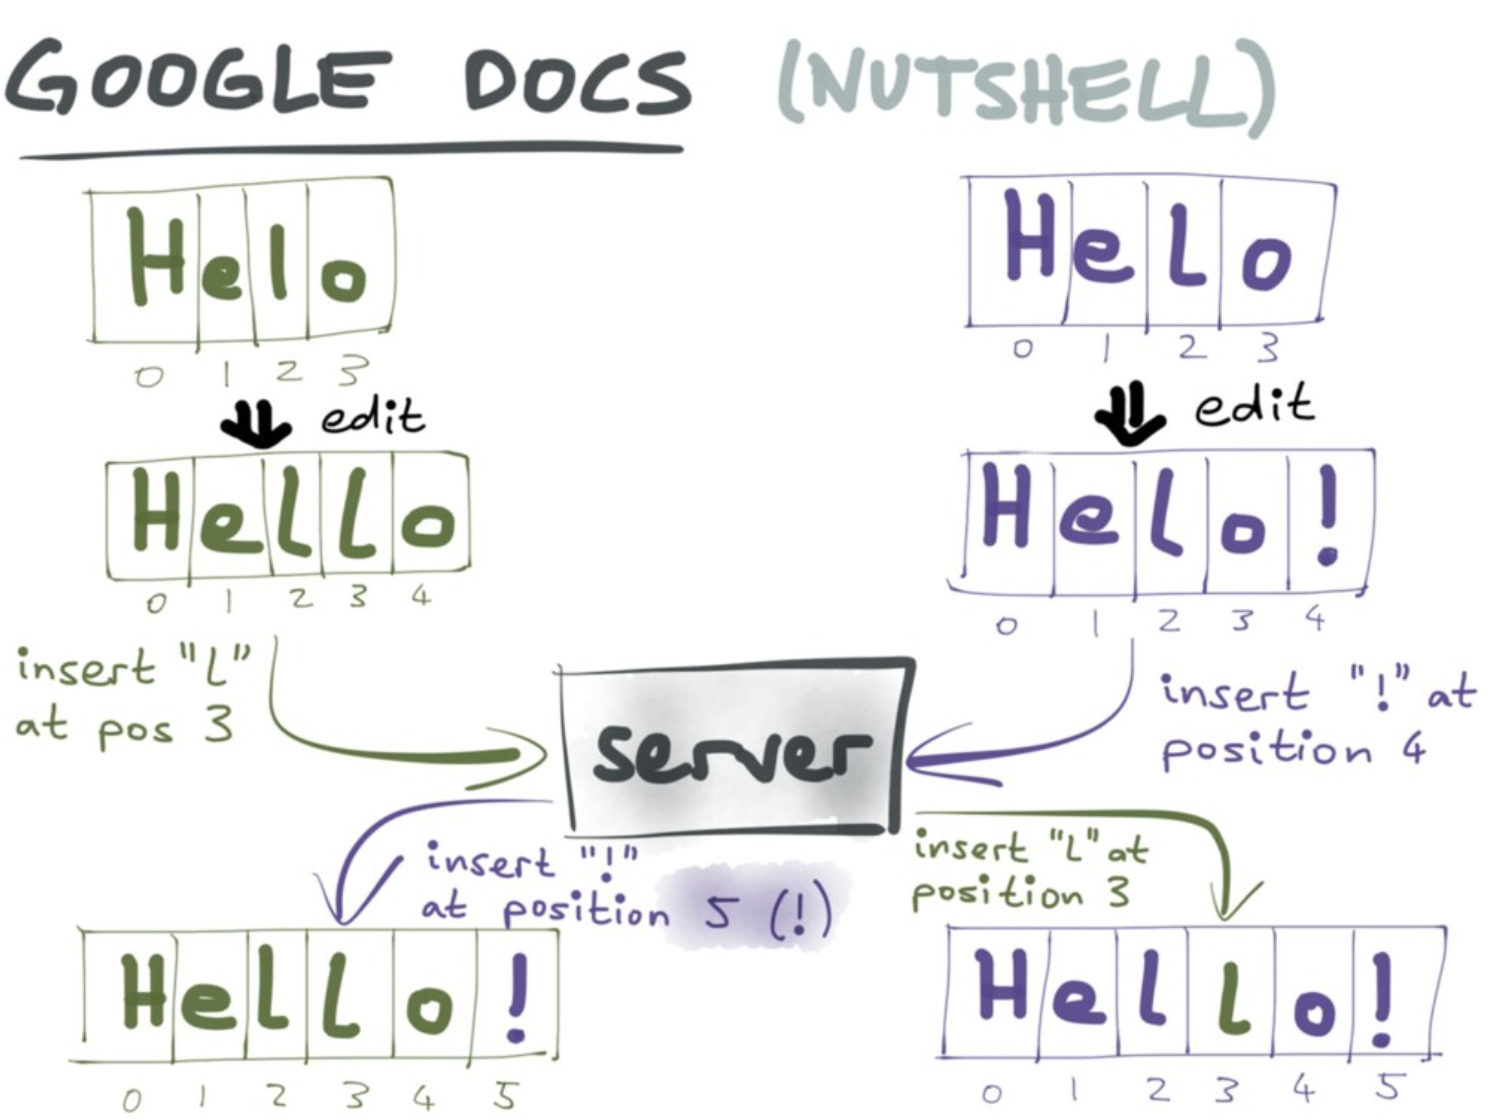 GOOGLE DOCS (NUTSHELL)
Helo
0 1 2 3
edit
Hello
0 1 2 3 4
insert "L"
at pos 3
Helo
0 1 2 3
edit
Helo!
0 1 2 3 4
insert "!" at
position 4
server
insert "!"
at position 5 (!)
insert "L" at
position 3
Hello!
0 1 2 3 4 5
Hello!
0 1 2 3 4 5